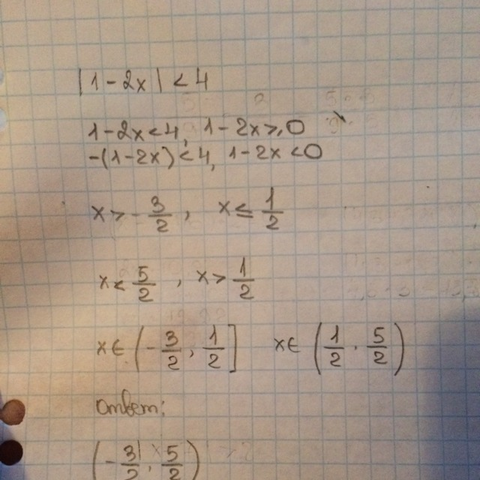 |1-2x| < 4
1-2x<4, 1-2x⩾0
-(1-2x)<4, 1-2x<0
x>-3/2, x≤1/2
x<5/2, x>1/2
x∈(-3/2, 1/2] x∈(1/2, 5/2)
ответ:
(-3/2, 5/2)